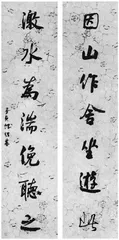 因山作舍坐遊此
激水為湍俛聽之